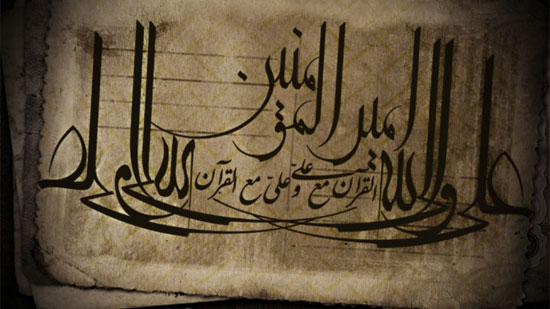 علی ولی الله
امیر المؤمنین
القرآن مع علیّ و علیّ مع القرآن